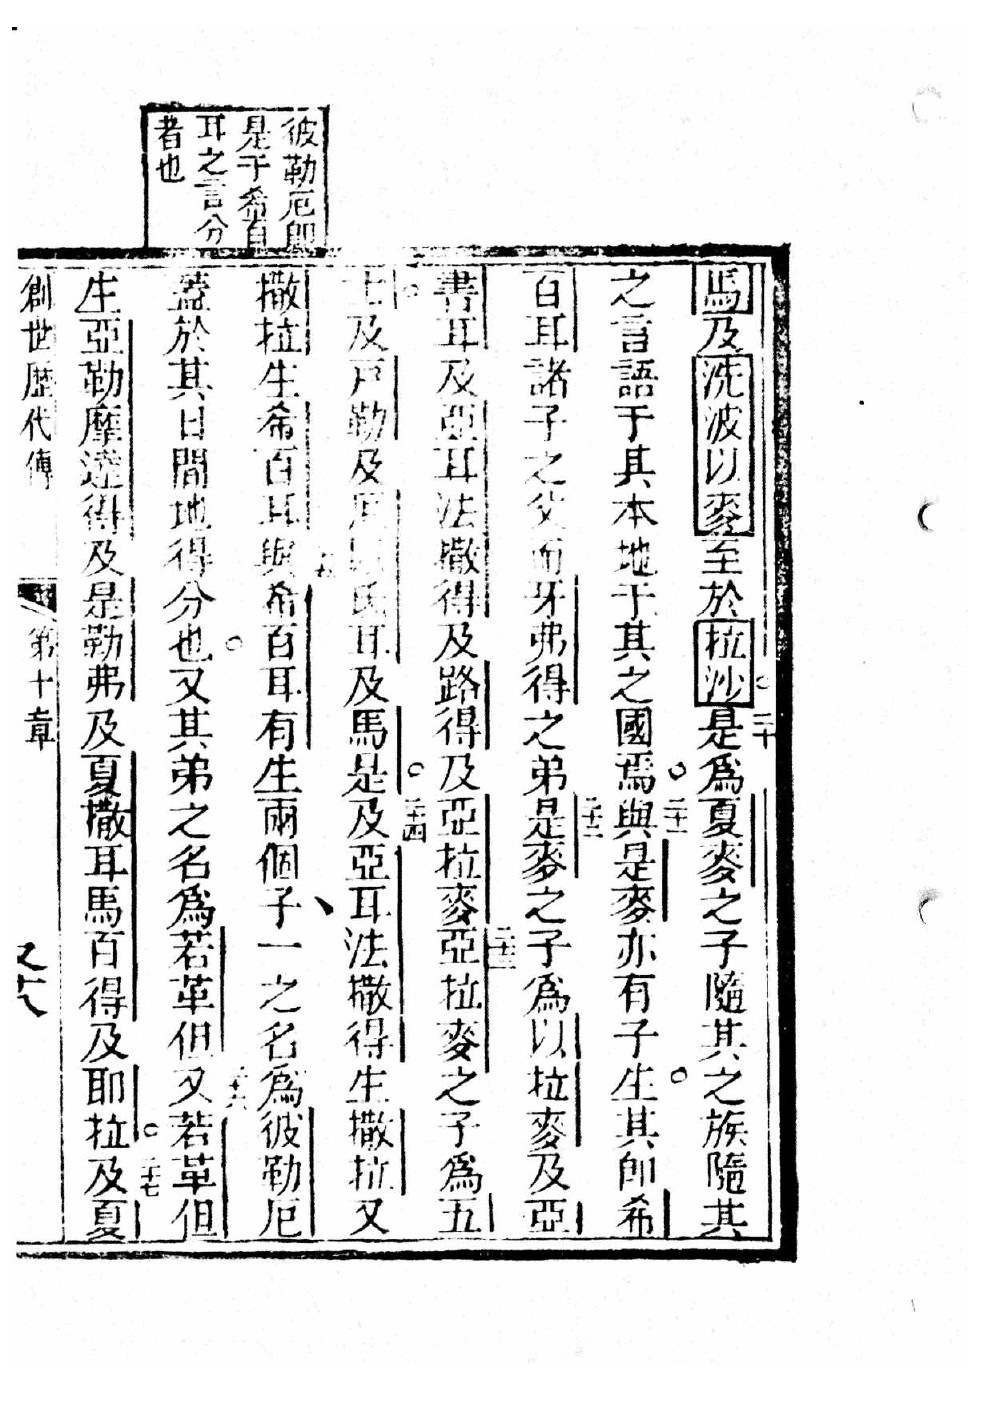 彼勒厄卽
是于希百
耳之言分
者也
馬及洗波以麥至於拉沙是爲夏麥之子隨其之族隨其
二十
之言語于其本地于其之國焉與是麥亦有子生其卽希
二十一
百耳諸子之父而牙弗得之弟是麥之子爲以拉麥及亞
二十二
書耳及亞耳法撒得及路得及亞拉麥亞拉麥之子爲五
二十三
士及戶勒及厄氏耳及馬是及亞耳法撒得生撒拉又
二十四
撒拉生希百耳與希百耳有生兩個子一之名爲彼勒厄
蓋於其日間地得分也又其弟之名爲若革但又若革但
二十六
生亞勒摩達得及是勒弗及夏撒耳馬百得及耶拉及夏
二十七
創世歷代傳 第十章